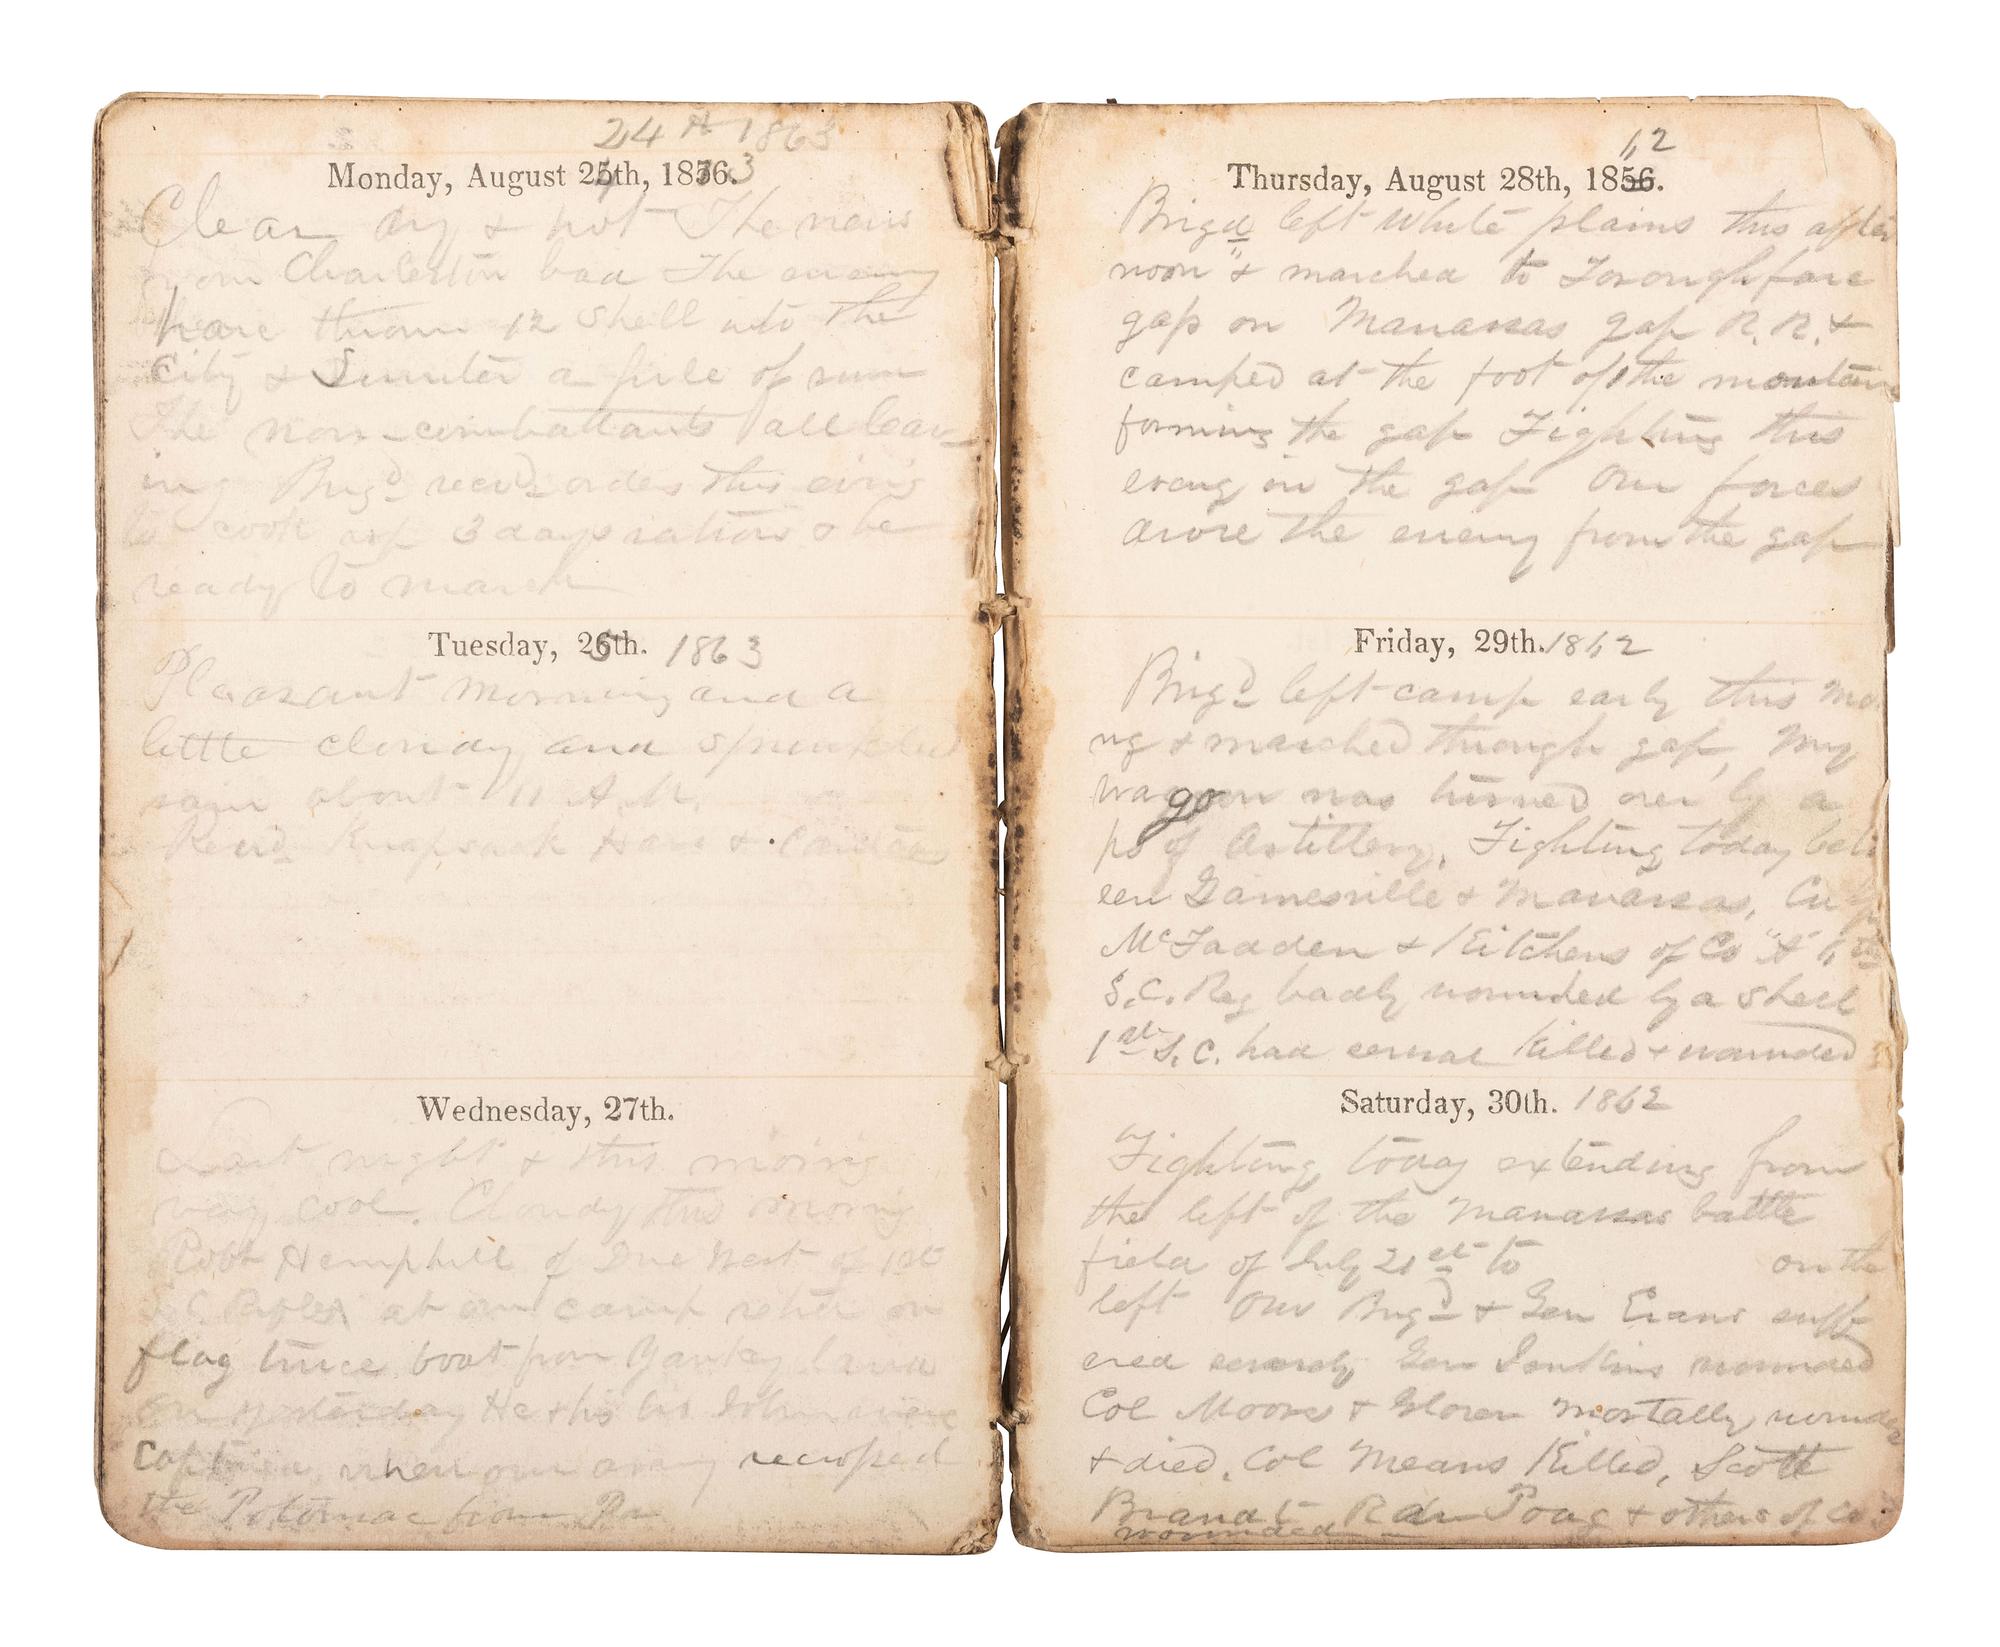 24th 1863
Monday, August 25th, 1856. 3
Clear dry & hot The news
from Charleston bad The enemy
have thrown 12 shell into the
City & Sumter a pile of ruin
The non-combattants all leav-
ing Brigd recvd orders this evng
to cook up 3 days rations & be
ready to march
Tuesday, 26th. 1863
Pleasant morning and a
little cloudy and sprinkled
rain about 11 A.M.
Recvd Knapsack Havs &
Wednesday, 27th.
Last night & this morng
very cool. Cloudy this morng
Robt Hemphill of Due West of 1st
S.C. Rifles at our camp retd on
flag truce boat from Yankey land
on yesterday He & his bro John were
captured, when our army recrossed
the Potomac from Pa
62
Thursday, August 28th, 1856.
Brigd left White plains this after
noon & marched to Thoroughfare
gap on Manassas gap R.R. &
camped at the foot of the mountain
forming the gap Fighting this
eveng in the gap Our forces
drove the enemy from the gap
Friday, 29th. 1862
Brigd left camp early this mo
ng & marched through gap, My
wagon was turned over by a
ps of Artillery, Fighting today betw
een Gainesville & Manassas, Culp
McFadden & Kitchens of Co "A" 6th
S.C. Reg badly wounded by a shell
1st S.C. had several killed & wounded
Saturday, 30th. 1862
Fighting today extending from
the left of the Manassas battle
field of July 21st to on the
left Our Brigd & Gen Evans suff
ered severely Gen Jenkins wounded
Col Moore & Glover mortally wounded
& died, Col Means Killed, Scott
Brandt Poag & others of Co
wounded